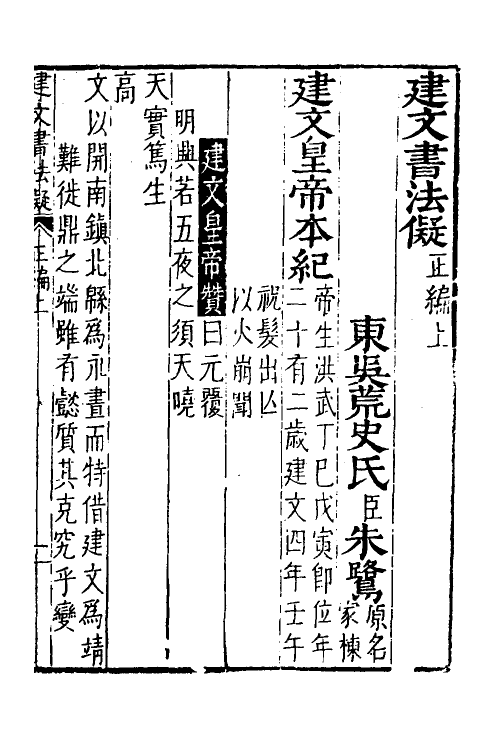 建文書法儗正編上
東吳荒史氏臣朱鷺原名
家棟
建文皇帝本紀帝生洪武丁巳戊寅即位年
二十有二歲建文四年壬午
祝髮出亾
以火崩聞
建文皇帝贊曰元覆
明興若五夜之須天曉
天實篤生
高
文以開南鎮北繇為永晝而特借建文為靖
難徙鼎之端雖有懿質其克究乎變
建文書法儗 正編上 一